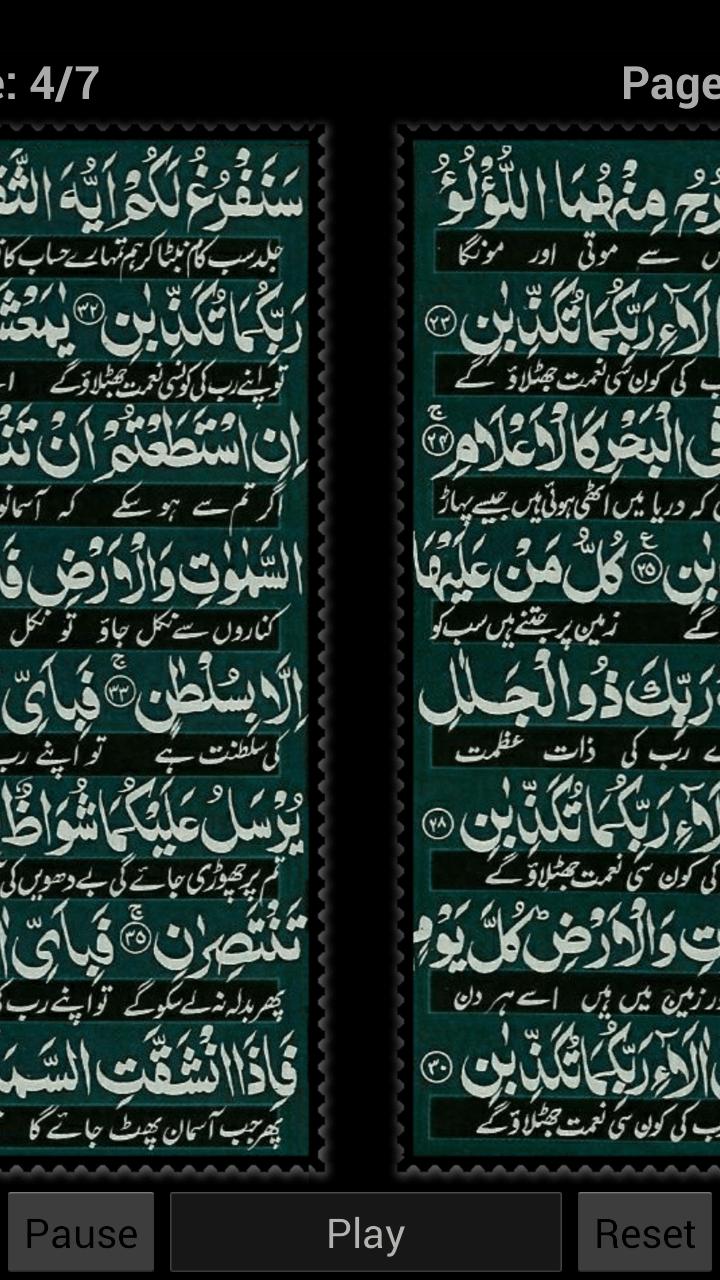 e: 4/7
Page
سَنَفْرُغُ لَكُمْ اَيُّهَ
جلد سب کام نبٹا کر ہم تمہارے حساب کا
رَبِّكُمَا تُكَذِّبٰنِ ۳۲ يٰمَعْشَ
تو اپنے رب کی کونسی نعمت جھٹلاؤ گے
اِنِ اسْتَطَعْتُمْ اَنْ تَنْ
اگر تم سے ہو سکے کہ
السَّمٰوٰتِ وَالْاَرْضِ فَ
کناروں سے نکل جاؤ تو نکل
اِلَّا بِسُلْطٰنٍ ۚ ۳۳ فَبِاَيِّ
کی سلطنت ہے تو اپنے رب
يُرْسَلُ عَلَيْكُمَا شُوَاظٌ
تم پر چھوڑی جائے گی بے دھویں کی
تَنْتَصِرٰنِ ۚ ۳۵ فَبِاَيِّ
پھر بدلہ نہ لے سکو گے تو اپنے رب
فَاِذَا انْشَقَّتِ السَّمَ
پھر جب آسمان پھٹ جائے گا
رُجُ مِنْهُمَا اللُّؤْلُؤُ
سے موتی اور مونگا
اٰلَآءِ رَبِّكُمَا تُكَذِّبٰنِ ۲۳
کی کون سی نعمت جھٹلاؤ گے
الْبَحْرِ كَالْاَعْلَامِ ۚ ۲۴
کہ دریا میں اٹھی ہوئی ہیں جیسے پہاڑ
بٰنِ ۲۵ ع كُلُّ مَنْ عَلَيْهَا
گے زمین پر جتنے ہیں سب کو
رَبِّكَ ذُو الْجَلٰلِ
رب کی ذات عظمت
لَآءِ رَبِّكُمَا تُكَذِّبٰنِ ۲۸
کی کون سی نعمت جھٹلاؤ گے
تِ وَالْاَرْضِ ؕ كُلَّ يَوْمٍ
زمین میں ہیں اسے ہر دن
اٰلَآءِ رَبِّكُمَا تُكَذِّبٰنِ ۳۰
کی کون سی نعمت جھٹلاؤ گے
Pause
Play
Reset